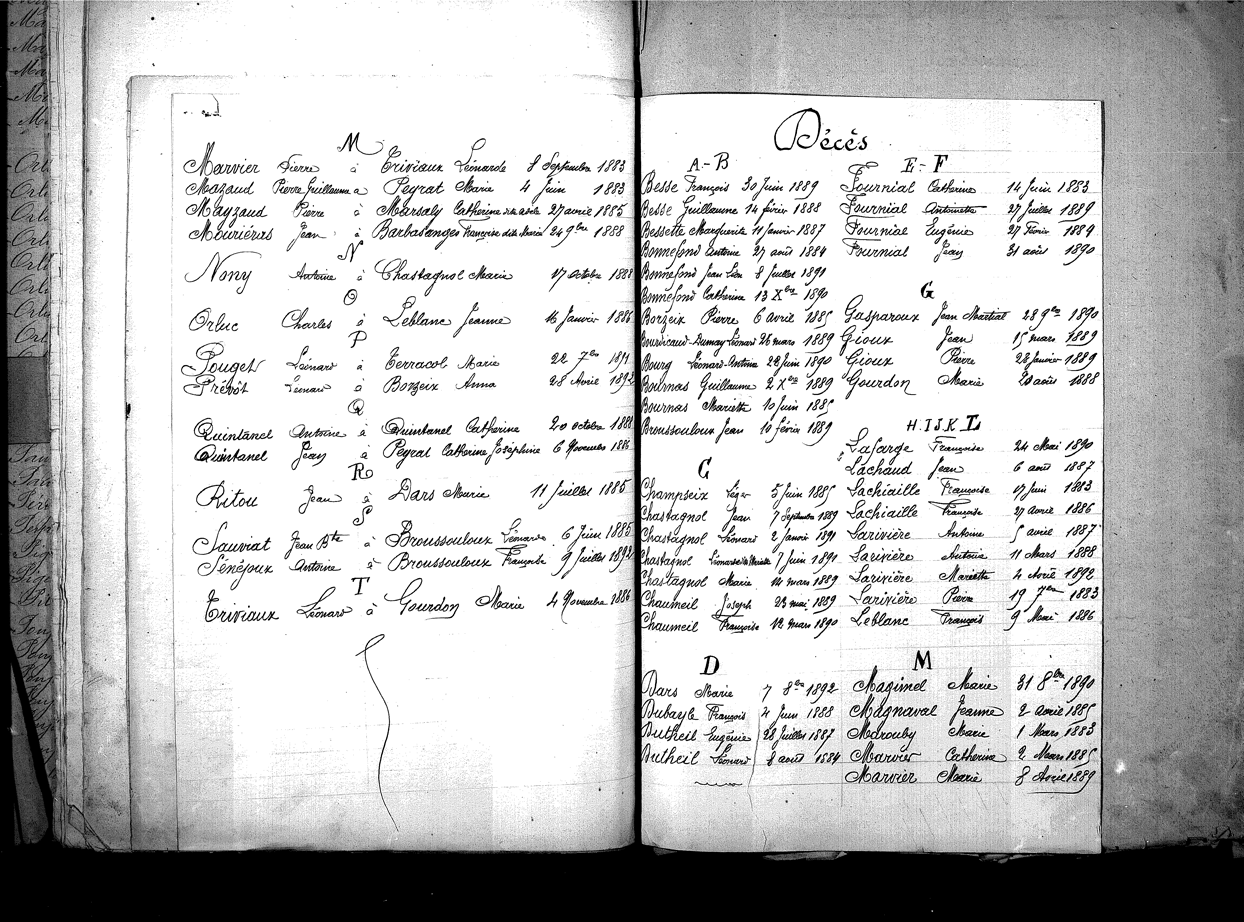 M
Marvier Pierre à Triviaux Léonarde 8 Septembre 1883
Mazaud Pierre Guillaume à Peyrat Marie 4 Juin 1883
Mayzaud Pierre à Marsaly Catherine dite Adèle 27 avril 1885
Mouriéras Jean à Barbasanges Françoise dite Maria 24 9bre 1888
N
Nony Antoine à Chastagnol Marie 17 octobre 1888
O
Orluc Charles à Leblanc Jeanne 16 Janvier 1886
P
Pouget Léonard à Terracol Marie 22 7bre 1891
Prévôt Léonard à Borzeix Anna 28 Avril 1892
Q
Quintanel Antoine à Quintanel Catherine 20 octobre 1888
Quintanel Jean à Peyrat Catherine Joséphine 6 Novembre 1886
R
Ritou Jean à Dars Marie 11 Juillet 1885
S
Sauviat Jean Bte à Broussouloux Léonarde 6 Juin 1885
Sénéjoux Antoine à Broussouloux Françoise 9 Juillet 1892
T
Triviaux Léonard à Gourdon Marie 4 Novembre 1886
Décès
A-B
Besse François 30 Juin 1889
Besse Guillaume 14 février 1888
Bessette Marguerite 11 Janvier 1887
Bonnefond Antoine 27 août 1884
Bonnefond Jean Léon 8 Juillet 1891
Bonnefond Catherine 13 Xbre 1890
Borzeix Pierre 6 avril 1885
Bourdicaud-Dumay Léonard 26 mars 1889
Bourg Léonard-Antoine 22 Juin 1890
Bournas Guillaume 2 Xbre 1889
Bournas Mariette 10 Juin 1885
Broussouloux Jean 10 février 1889
C
Champseix Léger 5 Juin 1885
Chastagnol Jean 7 Septembre 1889
Chastagnol Léonard 2 Janvier 1891
Chastagnol Léonarde dite Mariette 7 Juin 1891
Chastagnol Marie 14 mars 1889
Chaumeil Joseph 23 mai 1889
Chaumeil Françoise 12 mars 1890
D
Dars Marie 7 8bre 1892
Dubayle François 4 Juin 1888
Dutheil Eugénie 28 Juillet 1887
Dutheil Léonard 8 août 1884
E-F
Fournial Catherine 14 Juin 1883
Fournial Antoinette 27 Juillet 1889
Fournial Eugénie 27 Février 1889
Fournial Jean 31 août 1890
G
Gasparoux Jean Martial 28 9bre 1890
Gioux Jean 15 mars 1889
Gioux Pierre 28 Janvier 1889
Gourdon Marie 20 août 1888
H.I.J.K.L
Lafarge Françoise 24 Mai 1890
Lachaud Jean 6 août 1887
Lachiaille Françoise 17 Juin 1883
Lachiaille Françoise 27 avril 1886
Larivière Antoine 5 avril 1887
Larivière Antoine 11 Mars 1888
Larivière Mariette 4 Avril 1892
Larivière Pierre 19 7bre 1883
Leblanc François 9 Mai 1886
M
Magimel Marie 31 8bre 1890
Magnaval Jeanne 2 avril 1885
Marouby Marie 1 Mars 1883
Marvier Catherine 2 Mars 1885
Marvier Marie 8 Avril 1889